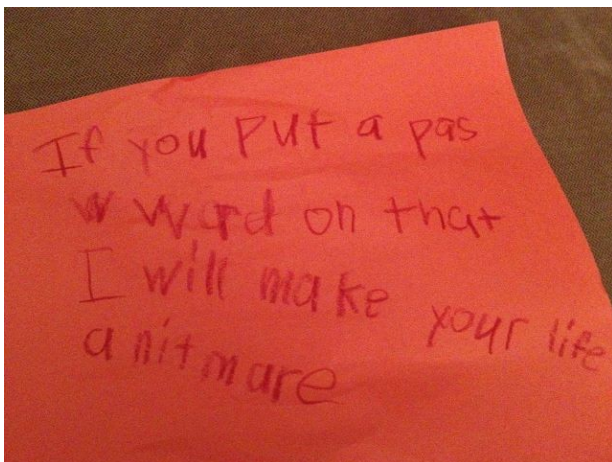 If you put a pas
w ward on that
I will make your life
a nitmare